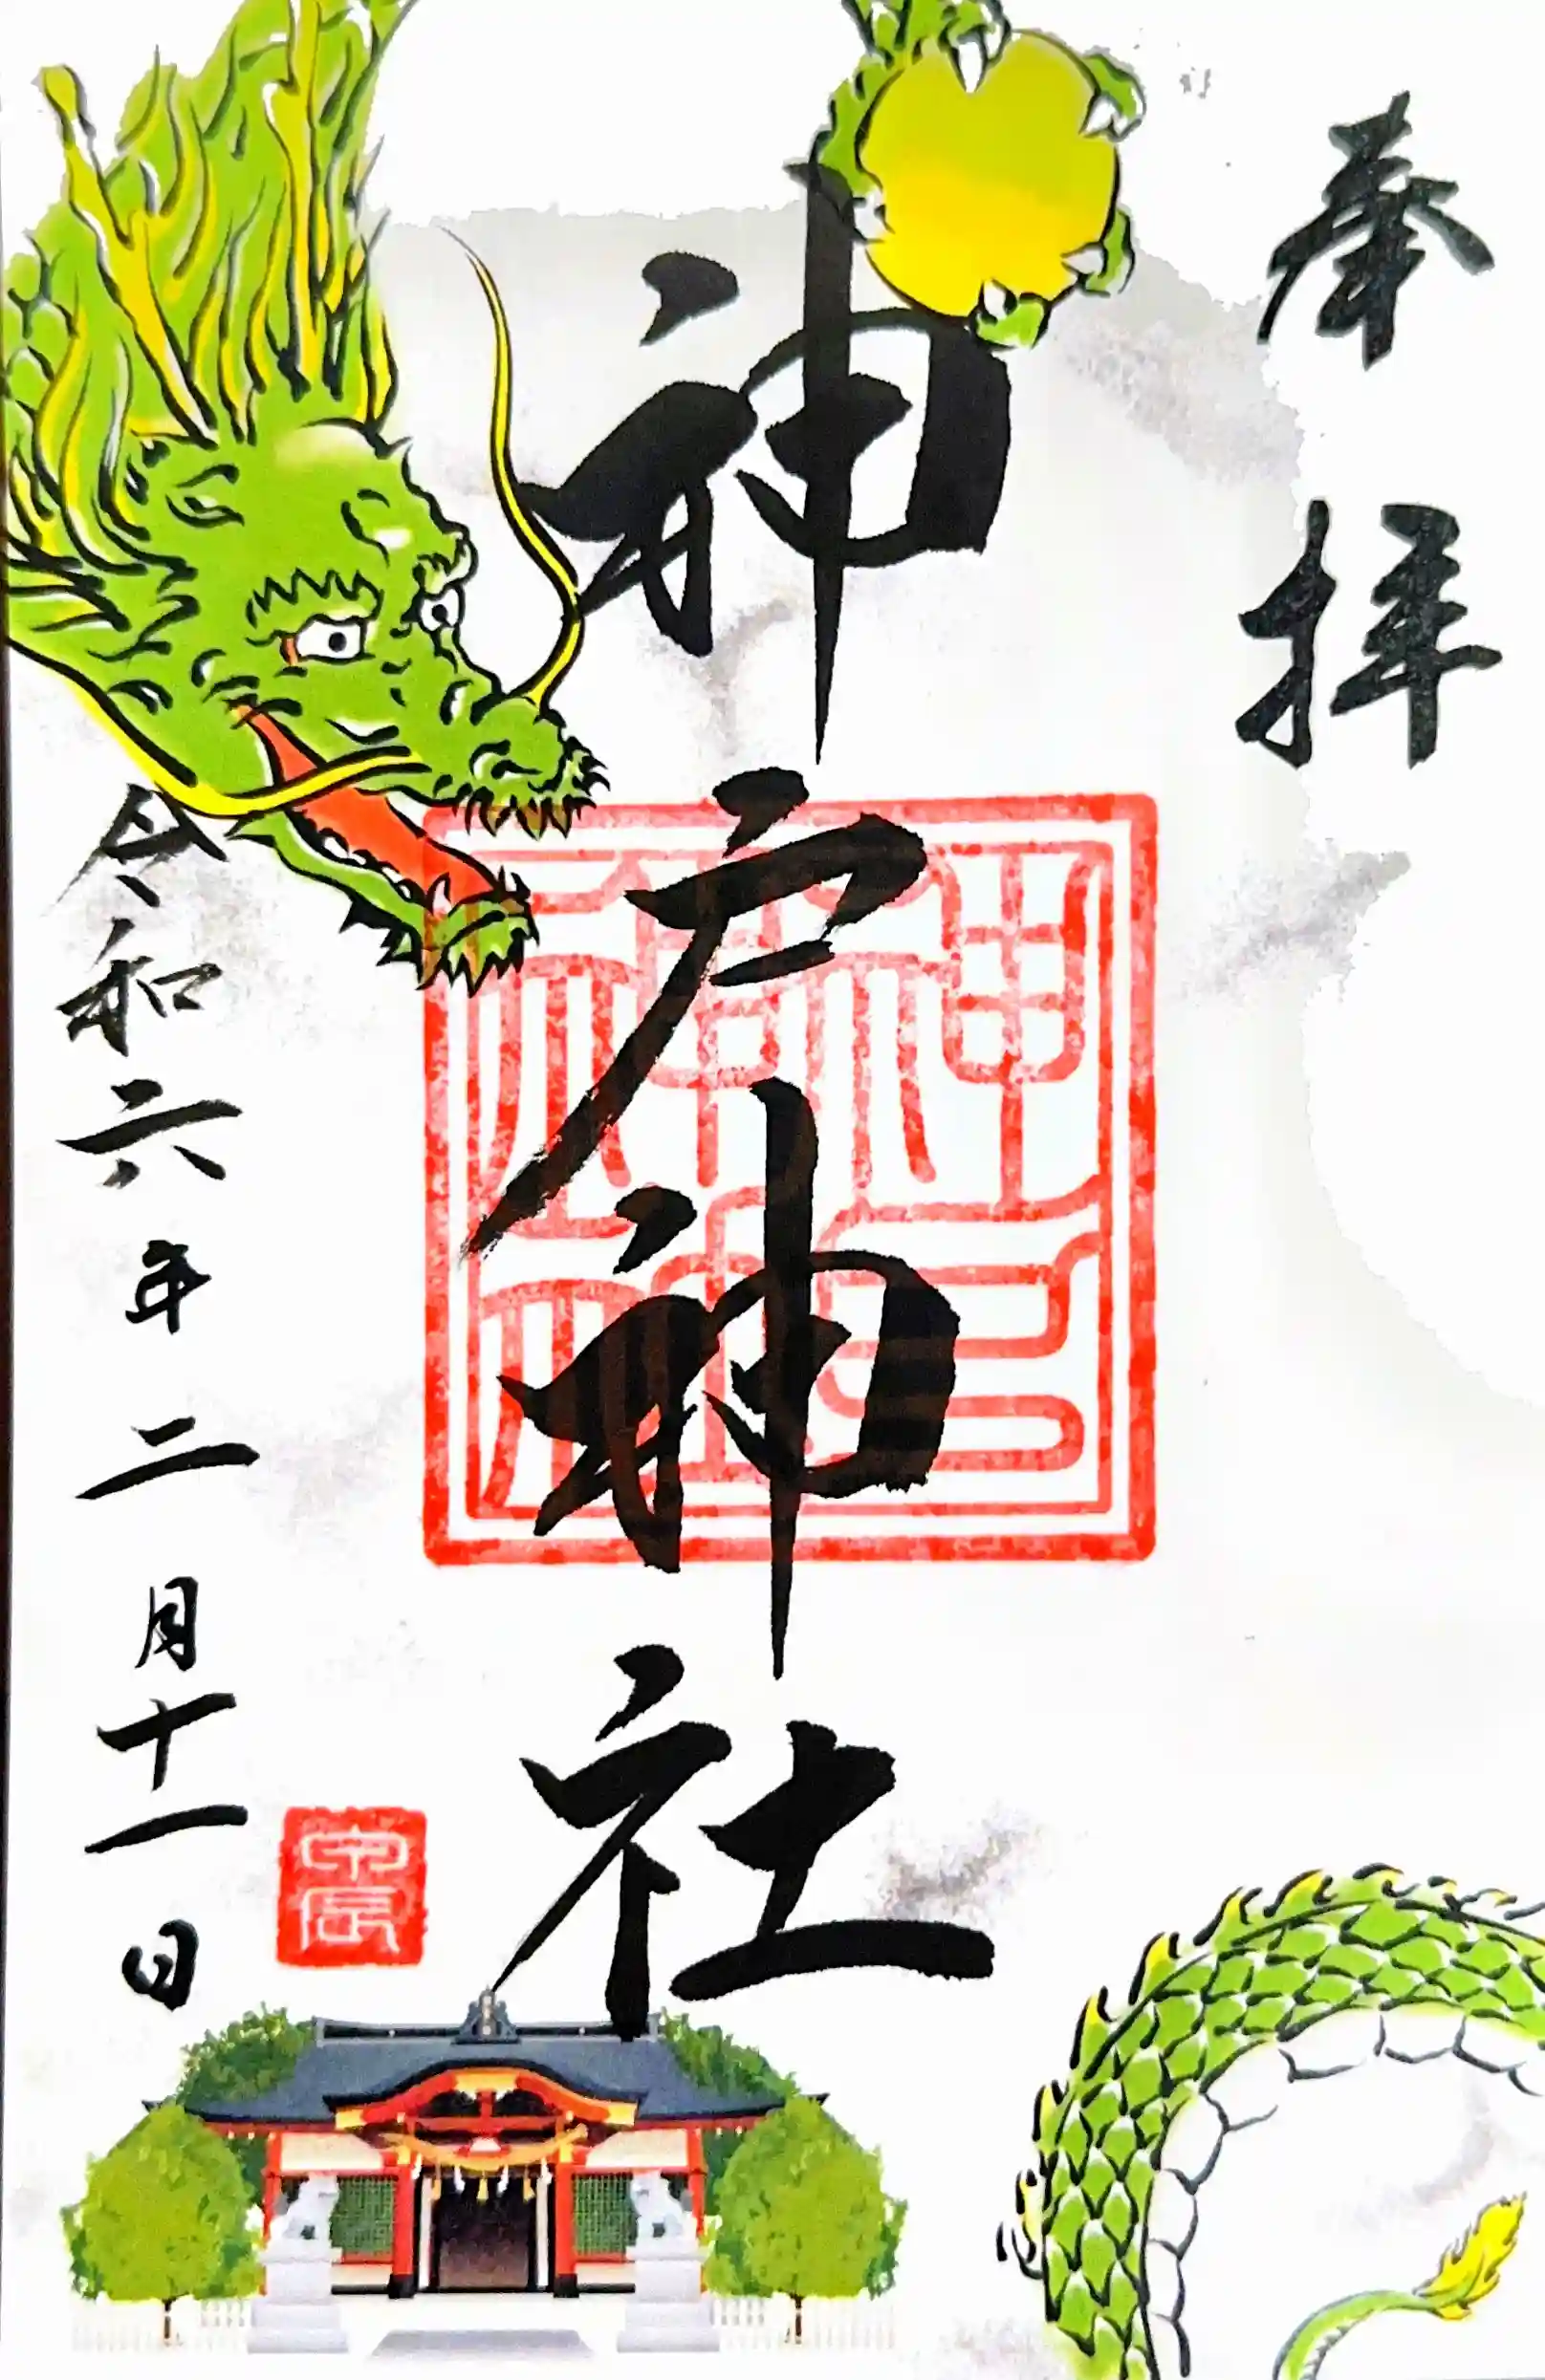 奉拝
神戸神社
令和六年二月十一日
甲辰